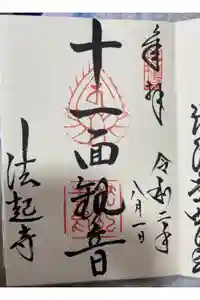 奉拝
令和二年
八月一日
十一面観音
法起寺